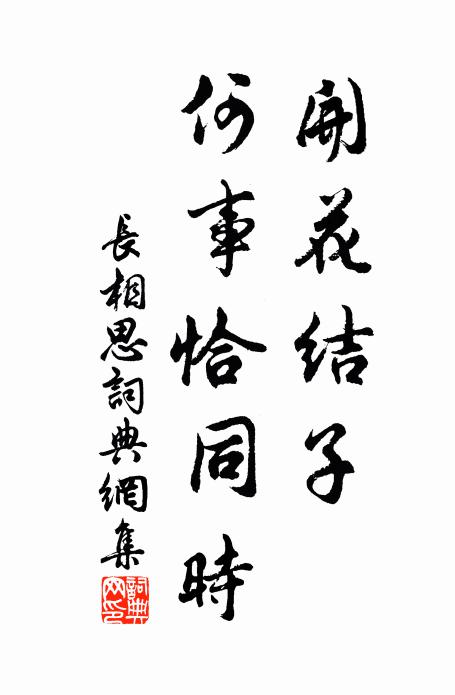 開花結子
何事恰同時
長相思詞典網集
詞典
网印